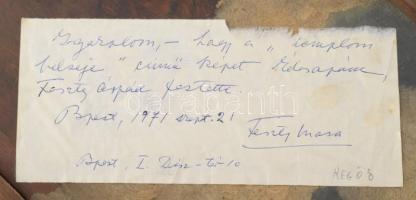 Igazolom, - hogy a „templom
belseje" című képet Édesapám,
Feszty Árpád festette.
Bpest, 1971 szept. 21
Feszty Masa
Bpest, I. Dísz-tér 10
REGŐS
darabanth